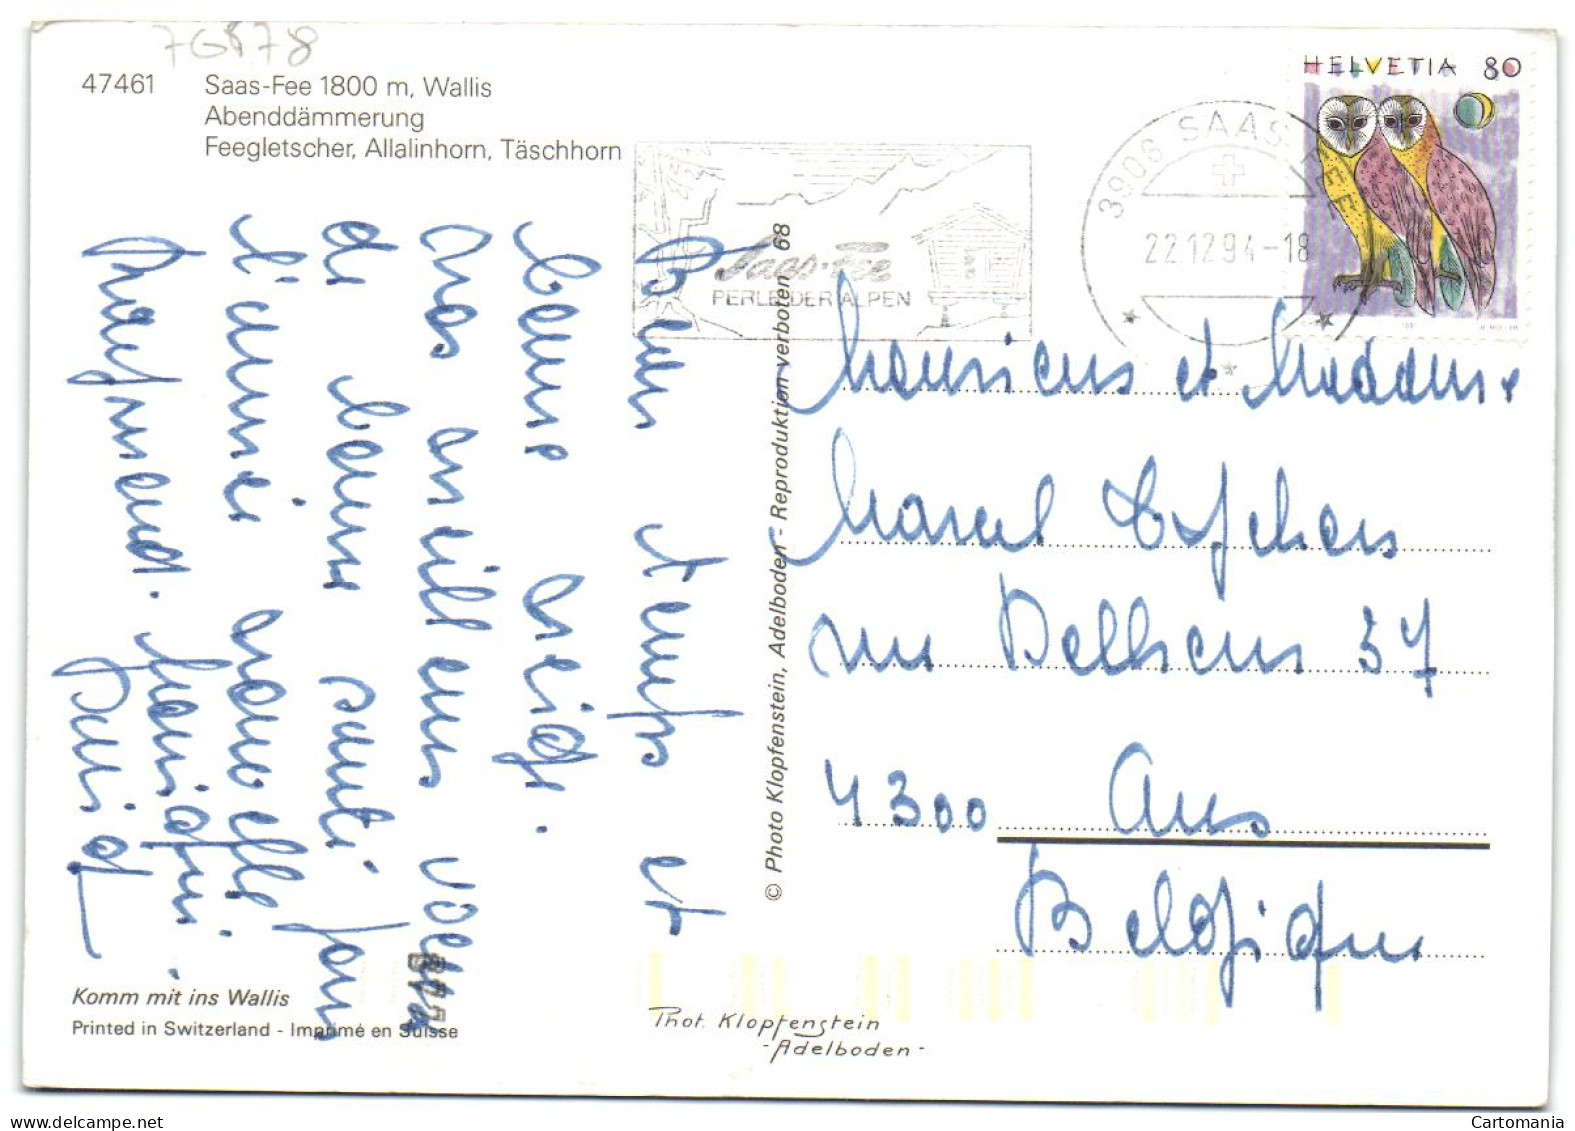 7GR78
47461 Saas-Fee 1800 m, Wallis
Abenddämmerung
Feegletscher, Allalinhorn, Täschhorn
Saas-Fee
PERLE DER ALPEN
3906 SAAS-FEE
22.12.94-18
HELVETIA 80
Beau temps et
bonne neige.
nos meilleurs voeux
de bonne santé pour
l'année nouvelle
© Photo Klopfenstein, Adelboden - Reproduktion verboten 68
Monsieur et Madame
Marcel
rue 37
4300 Ans
Belgique
Komm mit ins Wallis
Printed in Switzerland - Imprimé en Suisse
Phot. Klopfenstein
- Adelboden -
Cartomania